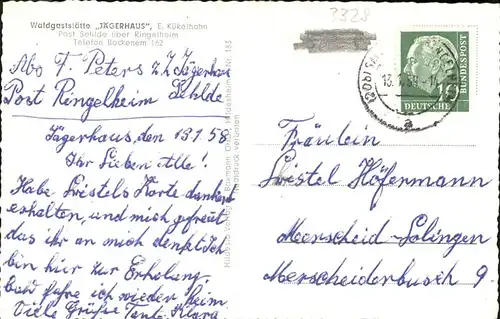 Waldgaststätte „JÄGERHAUS“, E. Kükelhahn
Post Sehlde über Ringelheim
Telefon Bockenem 162
Abs F. Peters z. Z. Jägerhaus
Post Ringelheim Sehlde
Jägerhaus, den 13.1.58
Ihr Lieben Alle!
Habe Kristels Karte dankend
erhalten, und mich gefreut
das ihr an mich denkt. Ich
bin hier zur Erholung
bald fahre ich wieder heim
Viele Grüße Tante Klara
3328
DEUTSCHE
BUNDESPOST
10
13.1.58
a
Fräulein
Kristel Höfermann
Merscheid-Solingen
Merscheiderbusch 9